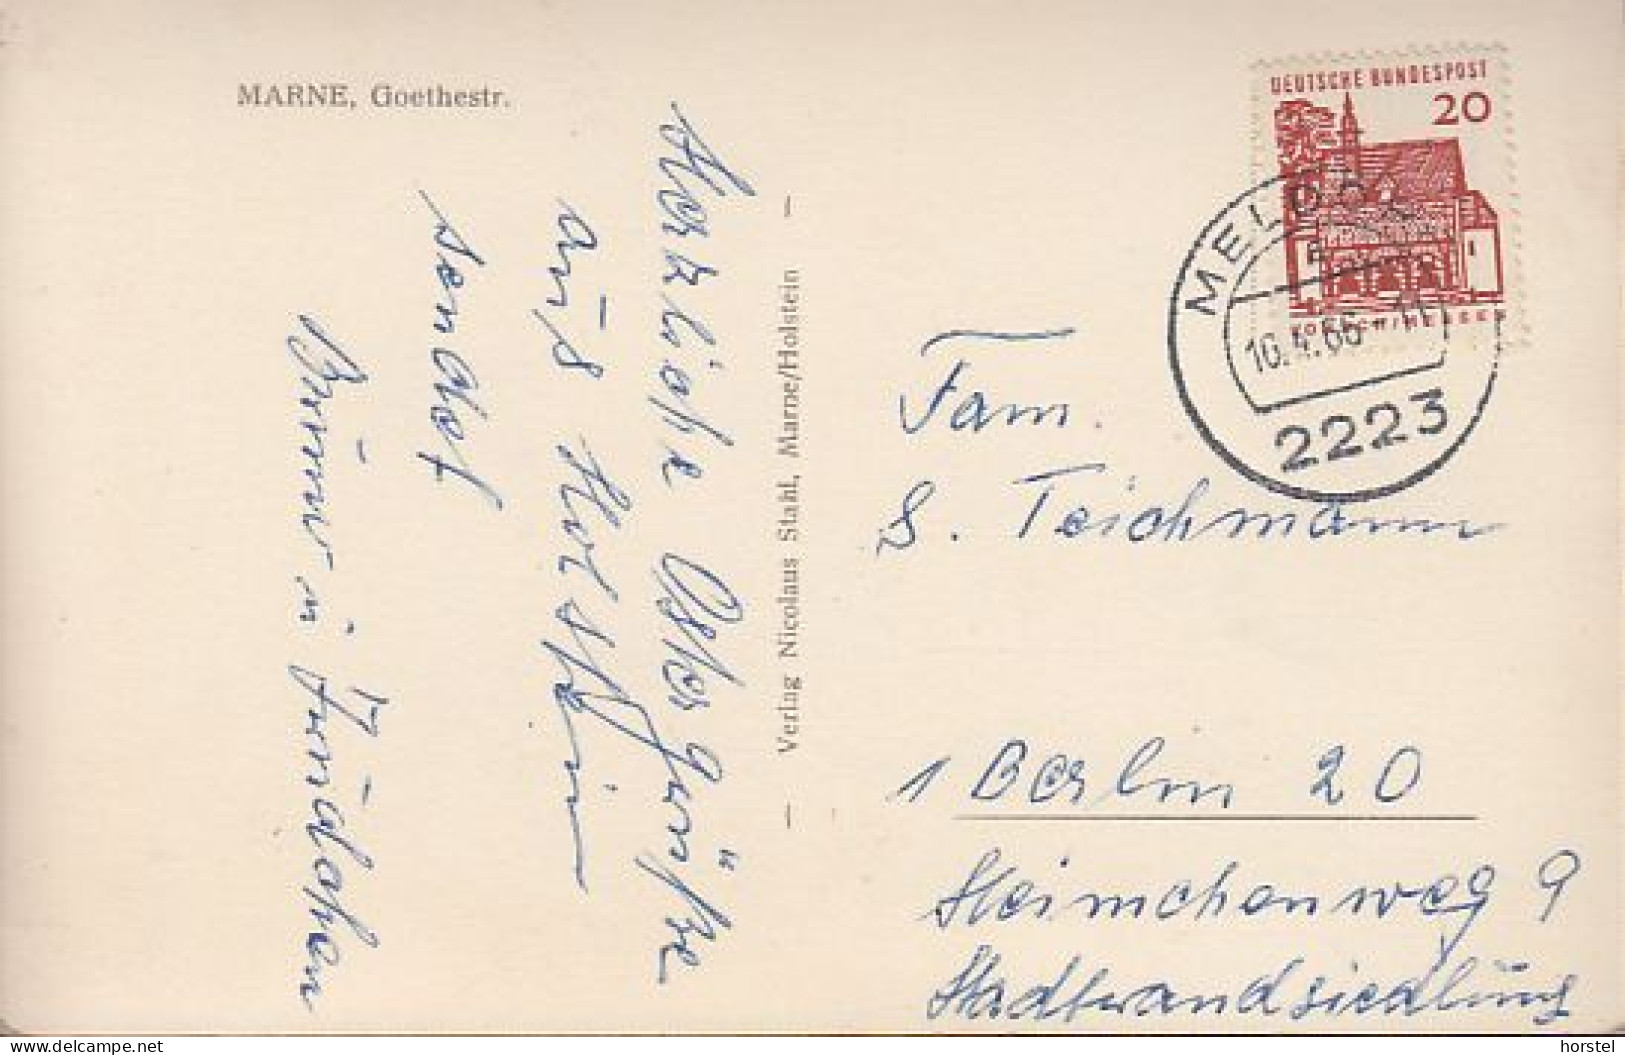 MARNE, Goethestr.
Herzliche Ostergrüße
aus Holstein
sendet
Bruno u.
— Verlag Nicolaus Stahl, Marne/Holstein —
DEUTSCHE BUNDESPOST
20
LORSCH/HESSEN
MELDORF
10.4.66-11
2223
Fam.
S. Teichmann
1 Berlin 20
Heimchenweg 9
Stadtrandsiedlung
delcampe.net
horstel